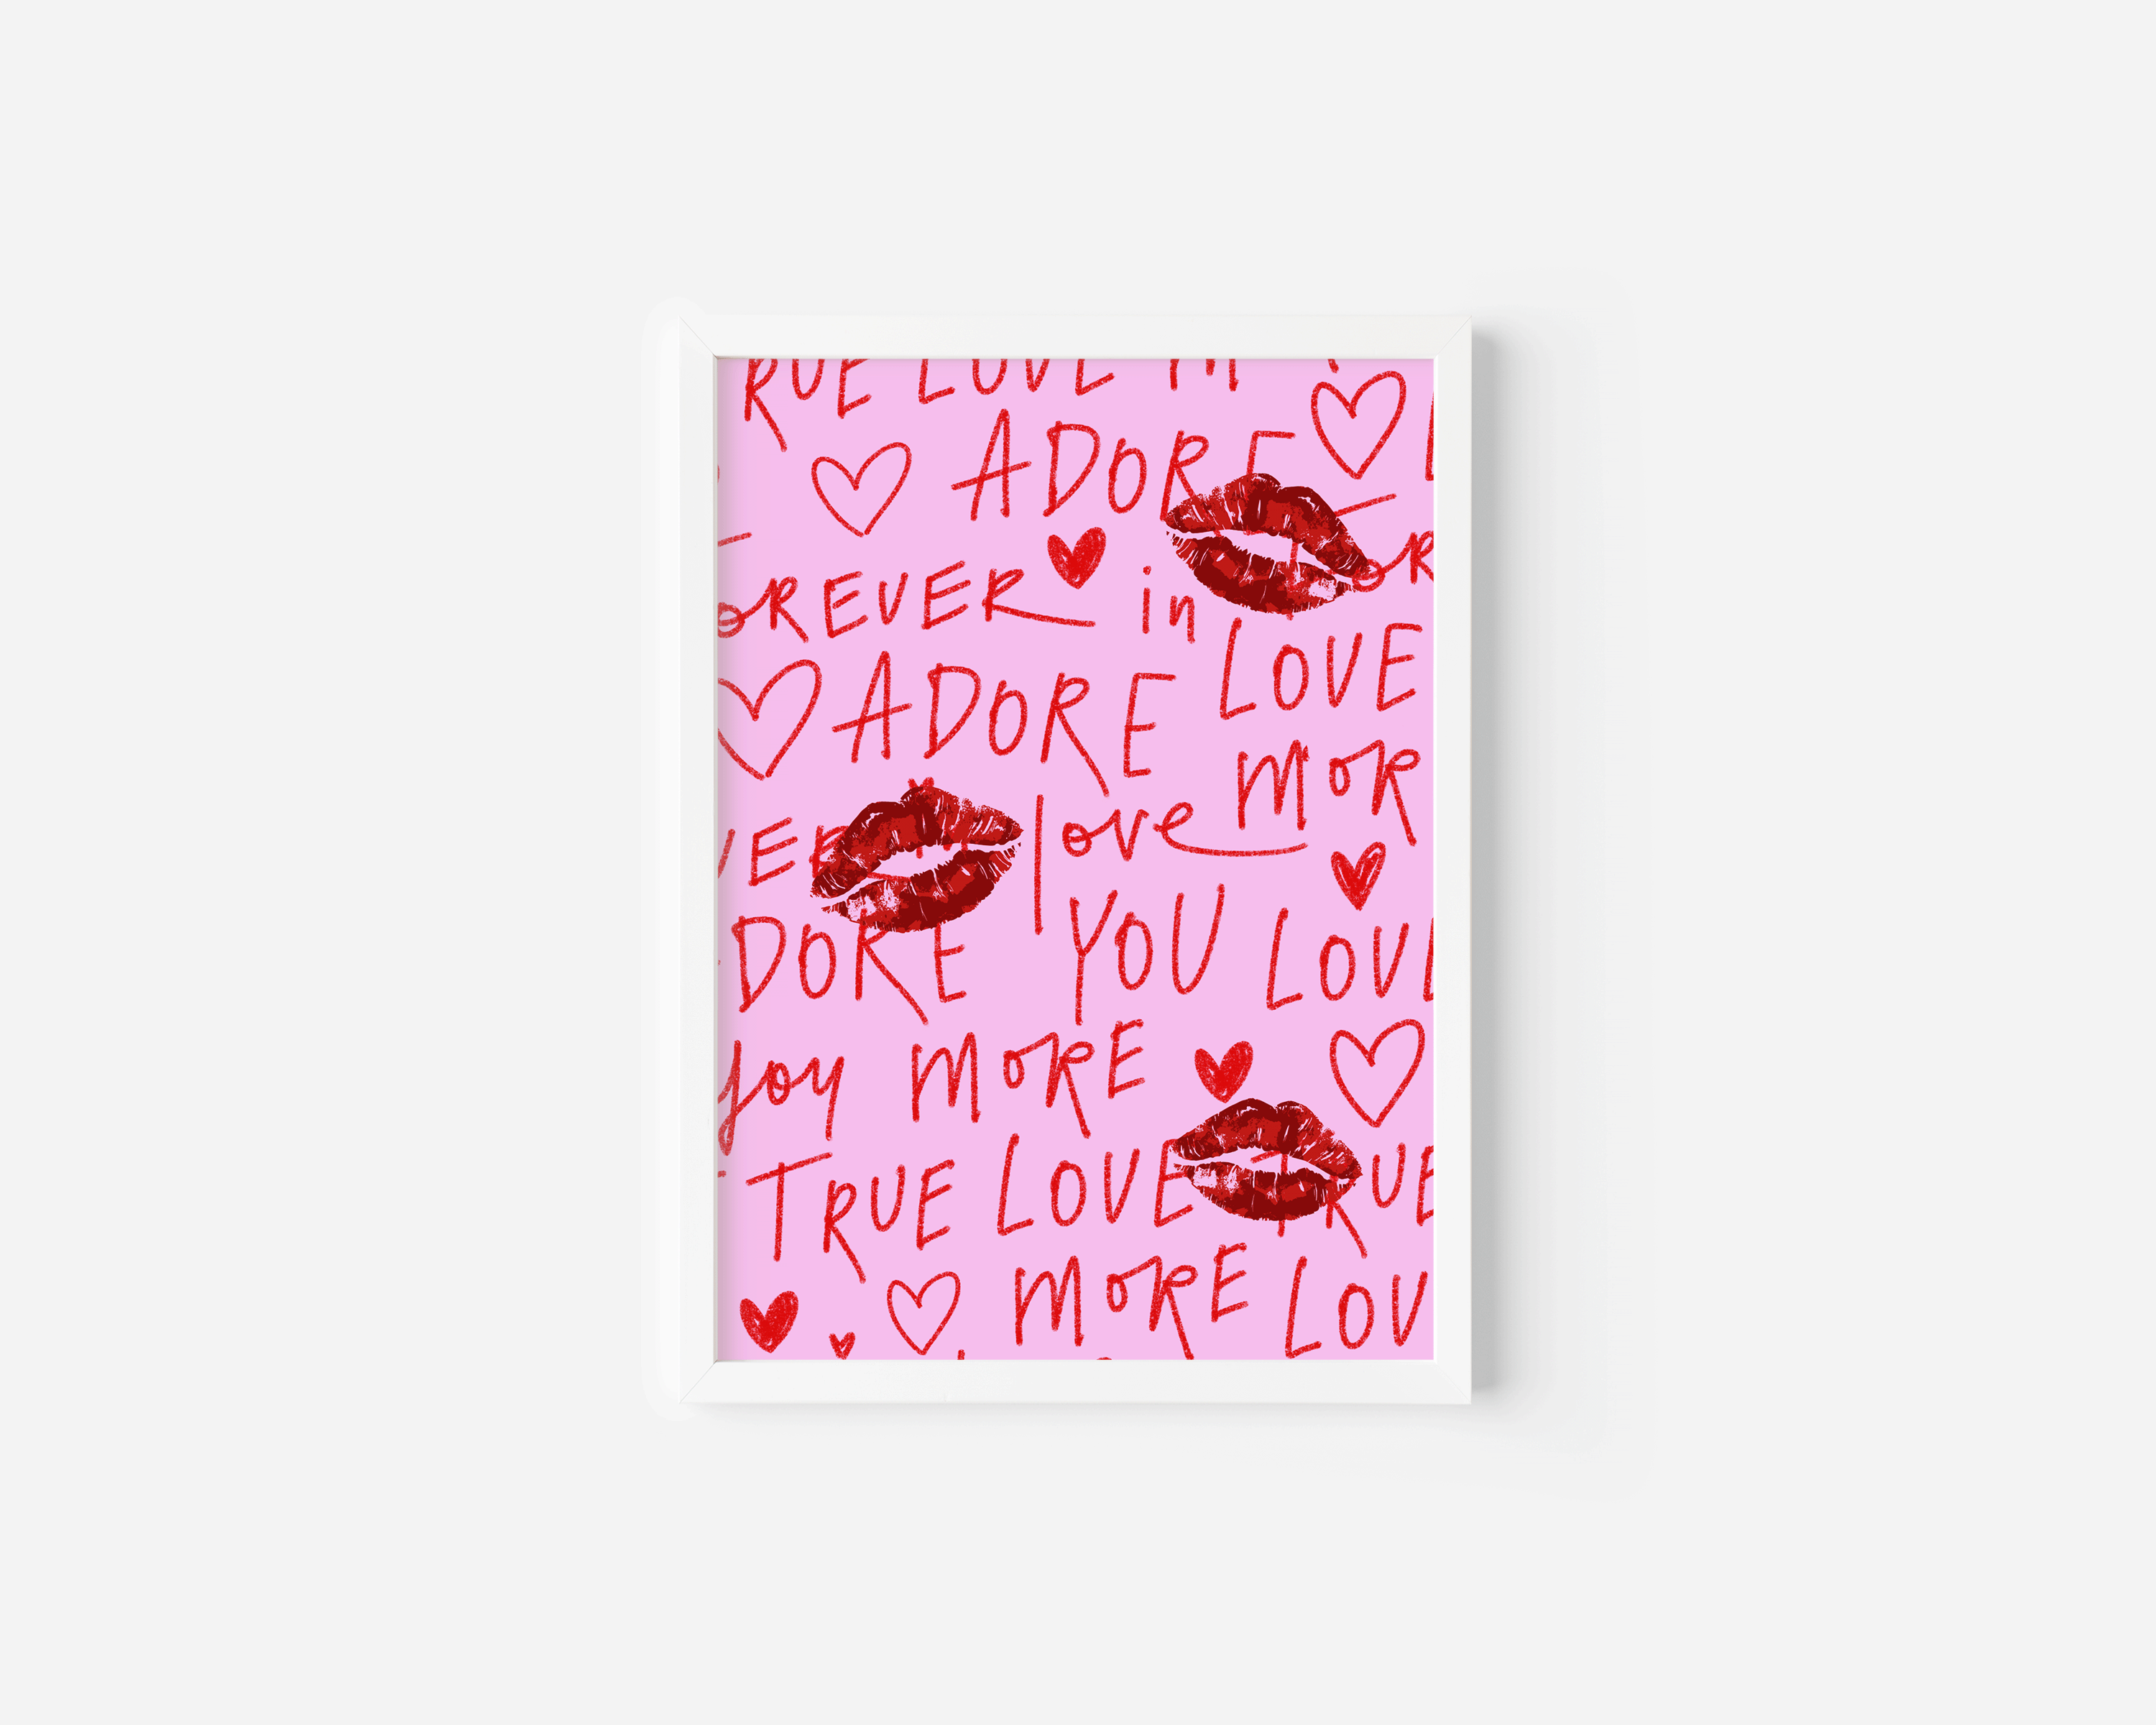 RUE LOVE
ADORE
OREVER in OR
ADORE LOVE
VER love MOR
DORE YOU LOVE
Joy MORE
TRUE LOVE TRUE
MORE LOV